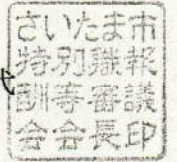 さいたま市
特別職報
酬等審議
会会長印